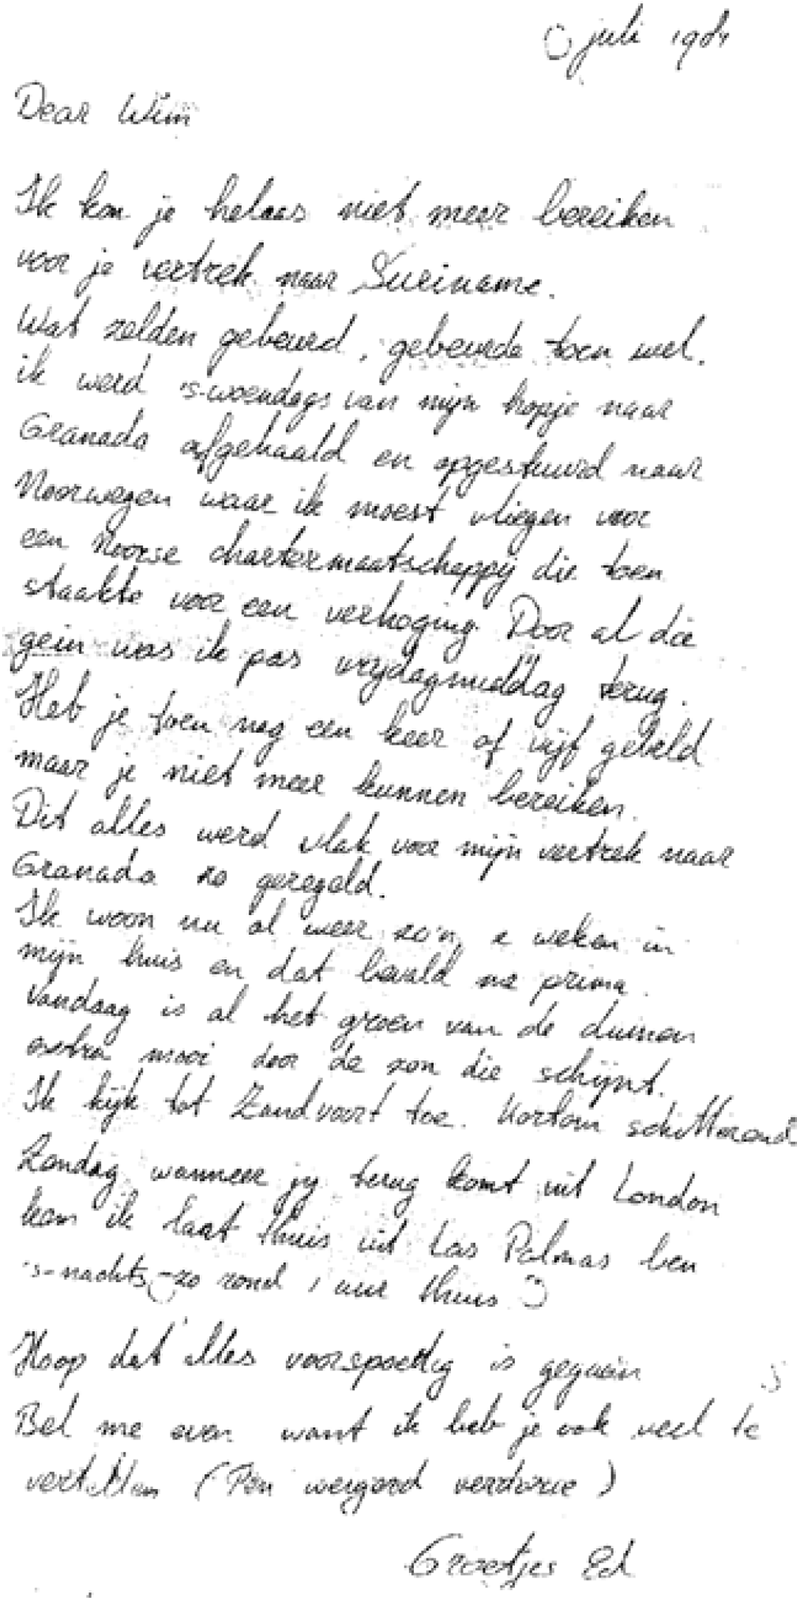 juli 1984
Dear Wim
Ik kon je helaas niet meer bereiken
voor je vertrek naar Suriname.
Wat zelden gebeurd, gebeurde toen wel.
ik werd 's-woendags van mijn hopje naar
Granada afgehaald en opgestuurd naar
Noorwegen waar ik moest vliegen voor
een Noorse chartermaatschappij die toen
staakte voor een verhoging Door al die
gein was ik pas vrijdagmiddag terug.
Heb je toen nog een keer of vijf gebeld
maar je niet meer kunnen bereiken.
Dit alles werd vlak voor mijn vertrek naar
Granada zo geregeld.
Ik woon nu al weer zo'n weken in
mijn huis en dat bevald me prima.
Vandaag is al het groen van de duinen
extra mooi door de zon die schijnt.
Ik kijk tot Zandvoort toe. Kortom schitterend
Zondag wanneer jij terug komt uit London
kom ik laat thuis uit Las Palmas ben
's-nachts zo rond 1 uur thuis
Hoop dat alles voorspoedig is gegaan
Bel me even want ik heb je ook veel te
vertellen (Pen weigerd verdorie)
Groetjes Ed